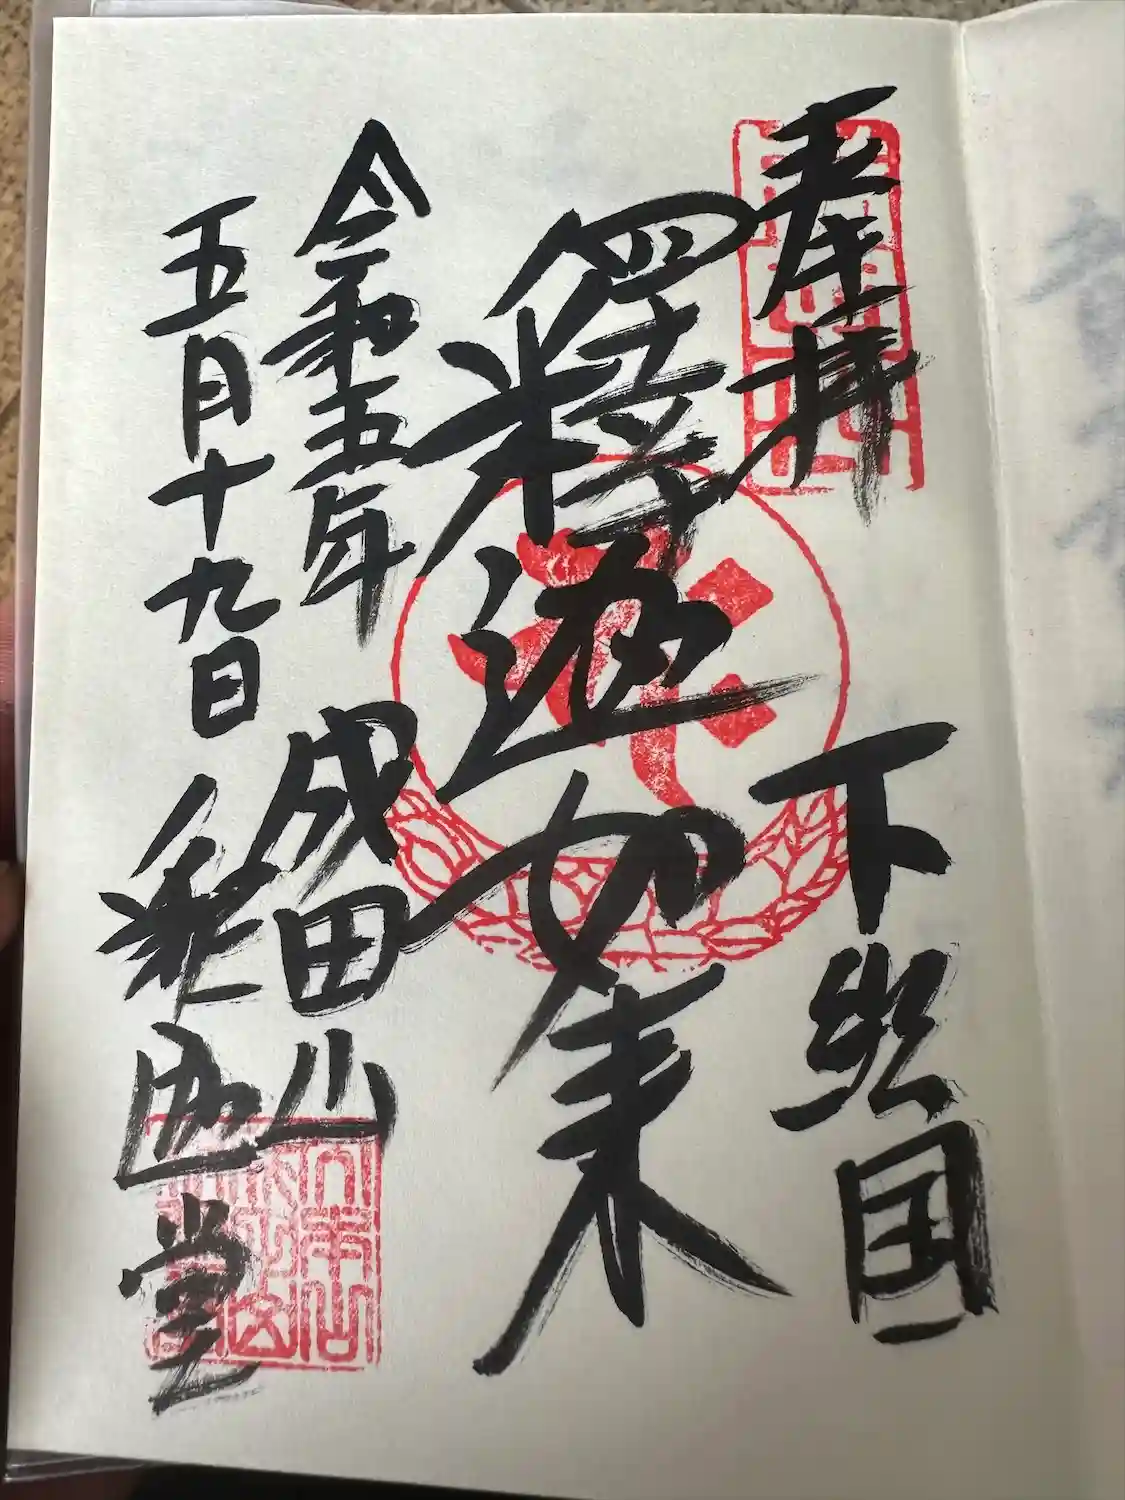 奉拝
下総国
釋迦如来
令和五年
五月十九日
成田山
釈迦堂